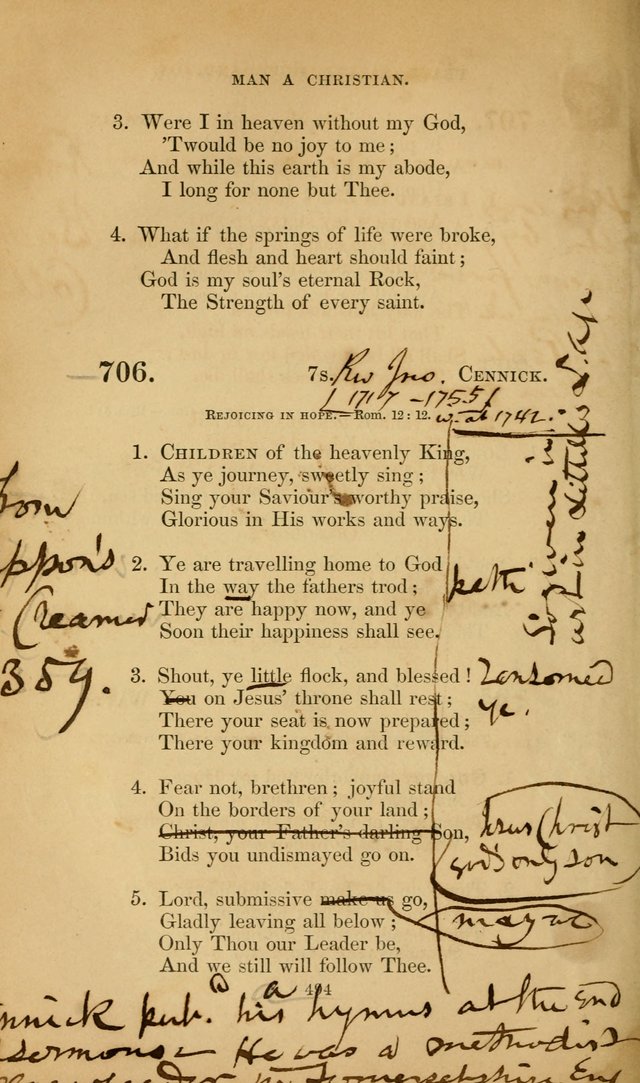 MAN A CHRISTIAN.
3. Were I in heaven without my God,
'Twould be no joy to me;
And while this earth is my abode,
I long for none but Thee.
4. What if the springs of life were broke,
And flesh and heart should faint;
God is my soul's eternal Rock,
The Strength of every saint.
706. 7s. Rev Jno. CENNICK.
[1717 - 1755]
REJOICING IN HOPE.—Rom. 12:12. w. at 1742.
1. CHILDREN of the heavenly King,
As ye journey, sweetly sing;
Sing your Saviour's worthy praise,
Glorious in His works and ways.
2. Ye are travelling home to God
In the way the fathers trod; path
They are happy now, and ye
Soon their happiness shall see.
3. Shout, ye little flock, and blessed! ransomed
You on Jesus' throne shall rest; ye.
There your seat is now prepared;
There your kingdom and reward.
4. Fear not, brethren; joyful stand
On the borders of your land;
Christ, your Father's darling Son, Jesus Christ
God's only son
Bids you undismayed go on.
5. Lord, submissive make us go,
Gladly leaving all below; may we
Only Thou our Leader be,
And we still will follow Thee.
494
from
ppon's
Creamer
359.
as in
nnick pub.d his hymns at the end
sermons - He was a methodist
Somersetshire Eng